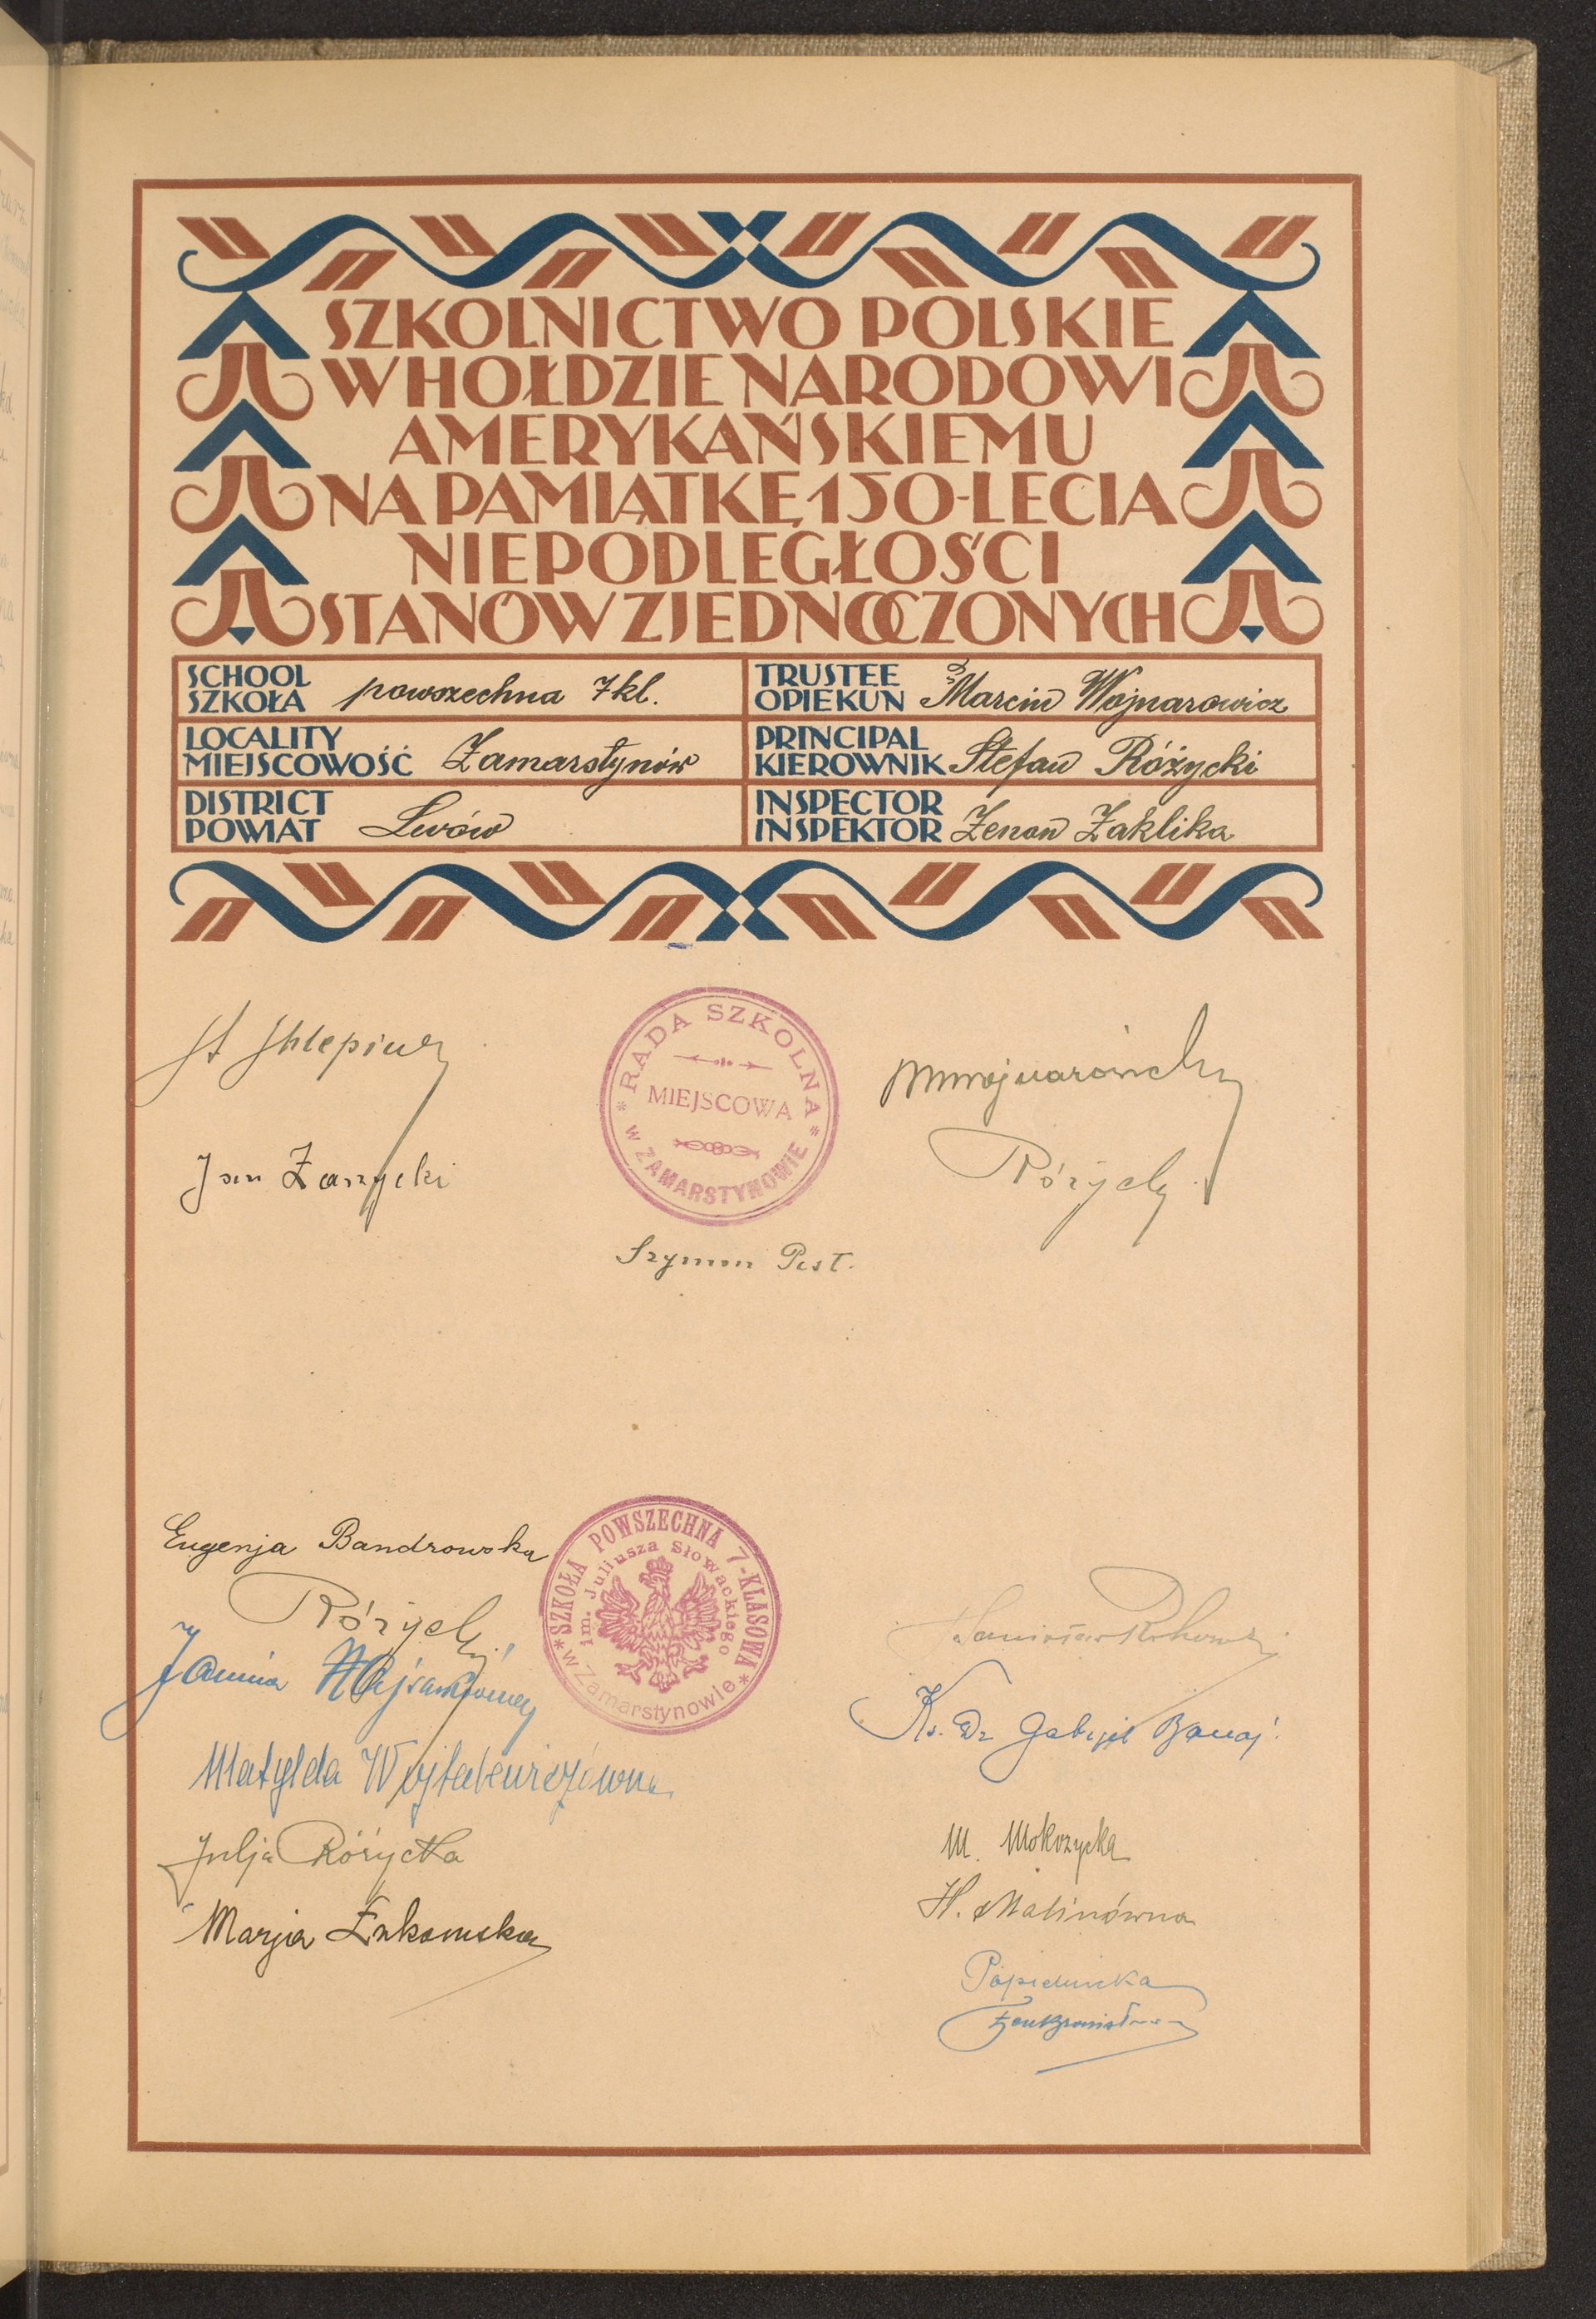 SZKOLNICTWO POLSKIE
W HOŁDZIE NARODOWI
AMERYKAŃSKIEMU
NA PAMIĄTKĘ 150-LECIA
NIEPODLEGŁOŚCI
STANÓW ZJEDNOCZONYCH
SCHOOL
SZKOŁA powszechna 7 kl.
TRUSTEE
OPIEKUN Marcin Wojnarowicz
LOCALITY
MIEJSCOWOŚĆ Zamarstynów
PRINCIPAL
KIEROWNIK Stefan Różycki
DISTRICT
POWIAT Lwów
INSPECTOR
INSPEKTOR Zenon Zaklika
RADA SZKOLNA
MIEJSCOWA
w ZAMARSTYNOWIE
MWojnarowicz
Jan Zarzycki
Różycki
Szymon Pest.
Eugenja Bandrowska
SZKOŁA POWSZECHNA 7-KLASOWA
im. Juliusza Słowackiego
w Zamarstynowie
Różycki
Janina
Ks. Dr Gabrjel
Matylda Wojtakiewiczówna
Julja Różycka
M. Mokrzycka
Marja Żukowska
H. Malinówna